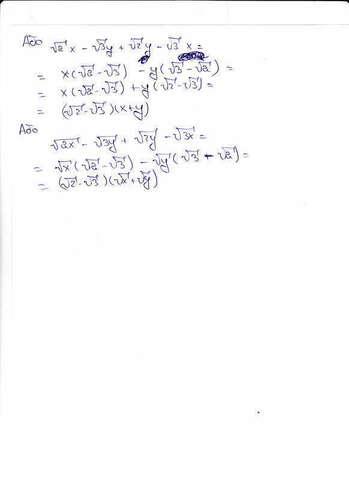 Або √2 x − √3 y + √2 y − √3 x =
= x(√2 − √3) − y(√3 − √2) =
= x(√2 − √3) + y(√2 − √3) =
= (√2 − √3)(x + y)
Або
√2x − √3y + √2y − √3x =
= √x(√2 − √3) − √y(√3 − √2) =
= (√2 − √3)(√x + √y)